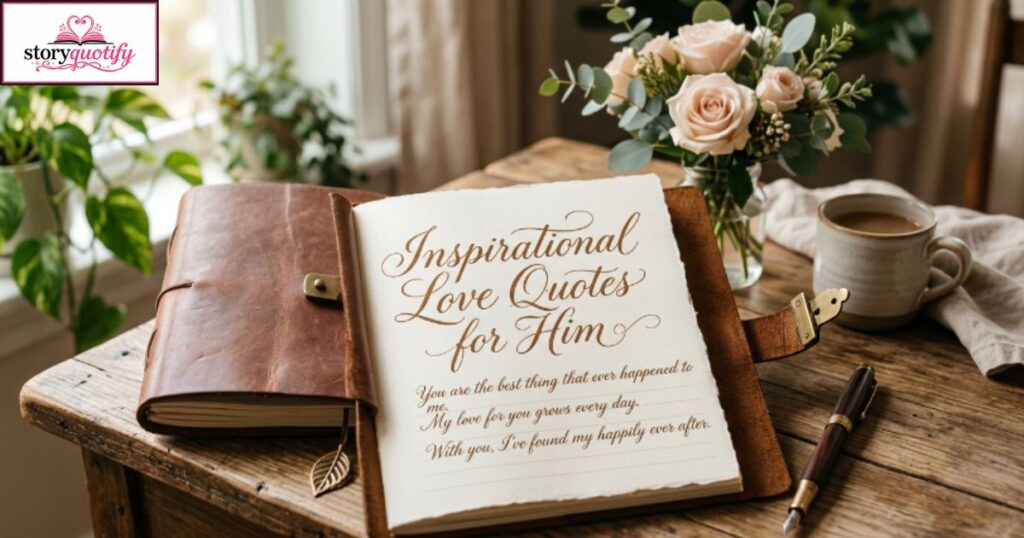 storyquotify
Inspirational
Love Quotes
for Him
You are the best thing that ever happened to
me.
My love for you grows every day.
With you, I've found my happily ever after.